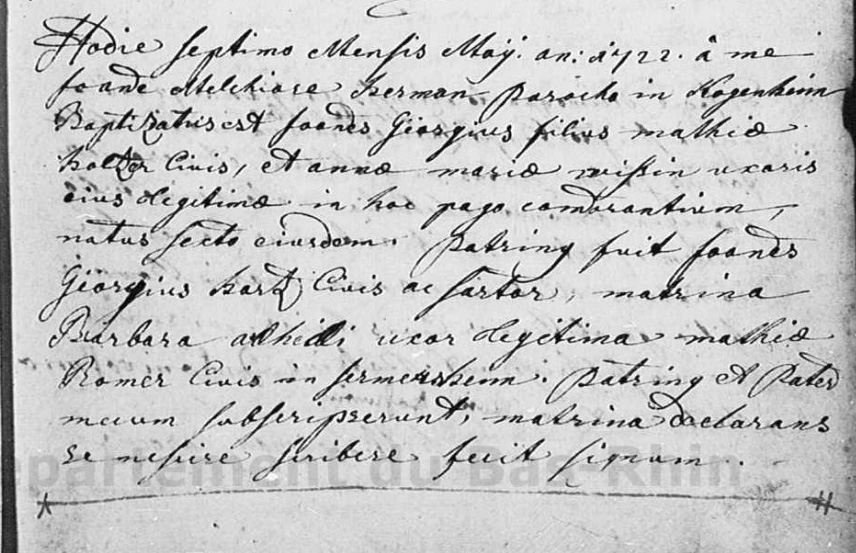 Hodie septimo Mensis Maÿ. an: 1722. â me
Joande Melchiore herman parocho in Kogenheim
Baptizatus est Joands Georgius filius mathiæ
holtzer Civis, et annæ mariæ wissin uxoris
eius legitimæ in hoc pago comorantium,
natus sexto eiusdem. patring fuit Joands
Georgius hartz Civis ac sartor, matrina
Barbara uxor legitima mathiæ
Romer Civis in sermersheim. patring et pater
mecum subscripserunt, matrina declarans
se nescire scribere fecit signum.
département du Bas-Rhin